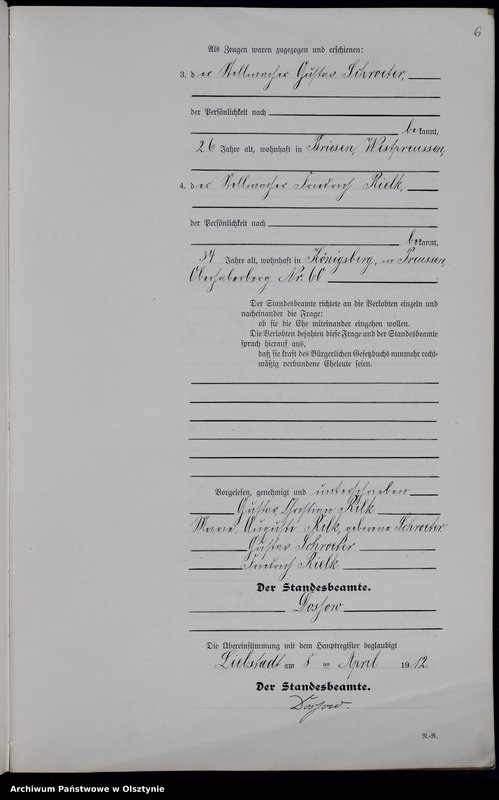 6
Als Zeugen waren zugezogen und erschienen:
3. der Stellmacher Gustav Schroeter,
der Persönlichkeit nach
bekannt,
26 Jahre alt, wohnhaft in Briesen, Westpreussen,
4. der Stellmacher Friedrich Rielk,
der Persönlichkeit nach
bekannt,
34 Jahre alt, wohnhaft in Königsberg, in Preussen,
Oberhaberberg Nr. 60
Der Standesbeamte richtete an die Verlobten einzeln und
nacheinander die Frage:
ob sie die Ehe miteinander eingehen wollen.
Die Verlobten bejahten diese Frage und der Standesbeamte
sprach hierauf aus,
daß sie kraft des Bürgerlichen Gesetzbuchs nunmehr recht-
mäßig verbundene Eheleute seien.
Vorgelesen, genehmigt und unterschrieben
Gustav Christian Rilk
Marie Auguste Rilk, geborene Schroeter
Gustav Schroeter
Friedrich Rielk
Der Standesbeamte.
Dossow
Die Übereinstimmung mit dem Hauptregister beglaubigt
Liebstadt am 8 ten April 1912.
Der Standesbeamte.
Dossow.
Archiwum Państwowe w Olsztynie